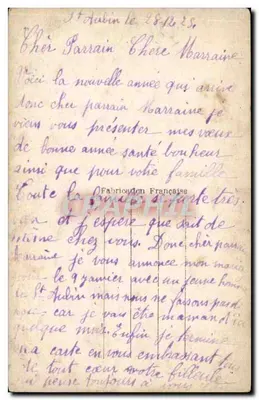 St Aubin le 28.12.25
Cher Parrain Chere Marraine
Voici la nouvelle année qui arrive
donc cher parrain Marraine je
viens vous présenter mes vœux
de bonne année santé bonheur
ainsi que pour votre famille
Fabrication Française
Toute la porte très
et j'espère que soit de
même chez vous. Donc cher parrain
Marraine je vous annonce mon mariage
le 9 janvier avec un jeune homme
de St Aubin mais nous ne faisons pas de
car je vais être maman d'ici
quelque mois. Enfin je termine
ma carte en vous embrassant
de tout cœur votre filleule
qui pense toujours à vous